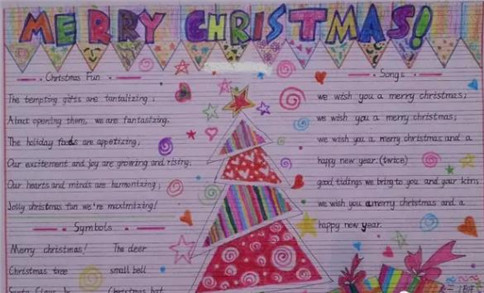 MERRY CHRISTMAS!
Christmas Fun
The tempting gifts are tantalizing;
About opening them, we are fantasizing.
The holiday foods are appetizing;
Our excitement and joy are growing and rising;
Our hearts and minds are harmonizing;
Jolly christmas fun we're maximizing!
Symbols
Merry christmas! The deer
Christmas tree small bell
Christmas hat
Songs
we wish you a merry christmas;
we wish you a merry christmas;
we wish you a merry christmas and a
happy new year. (twice)
good tidings we bring to you and your kin;
we wish you a merry christmas and a
happy new year.